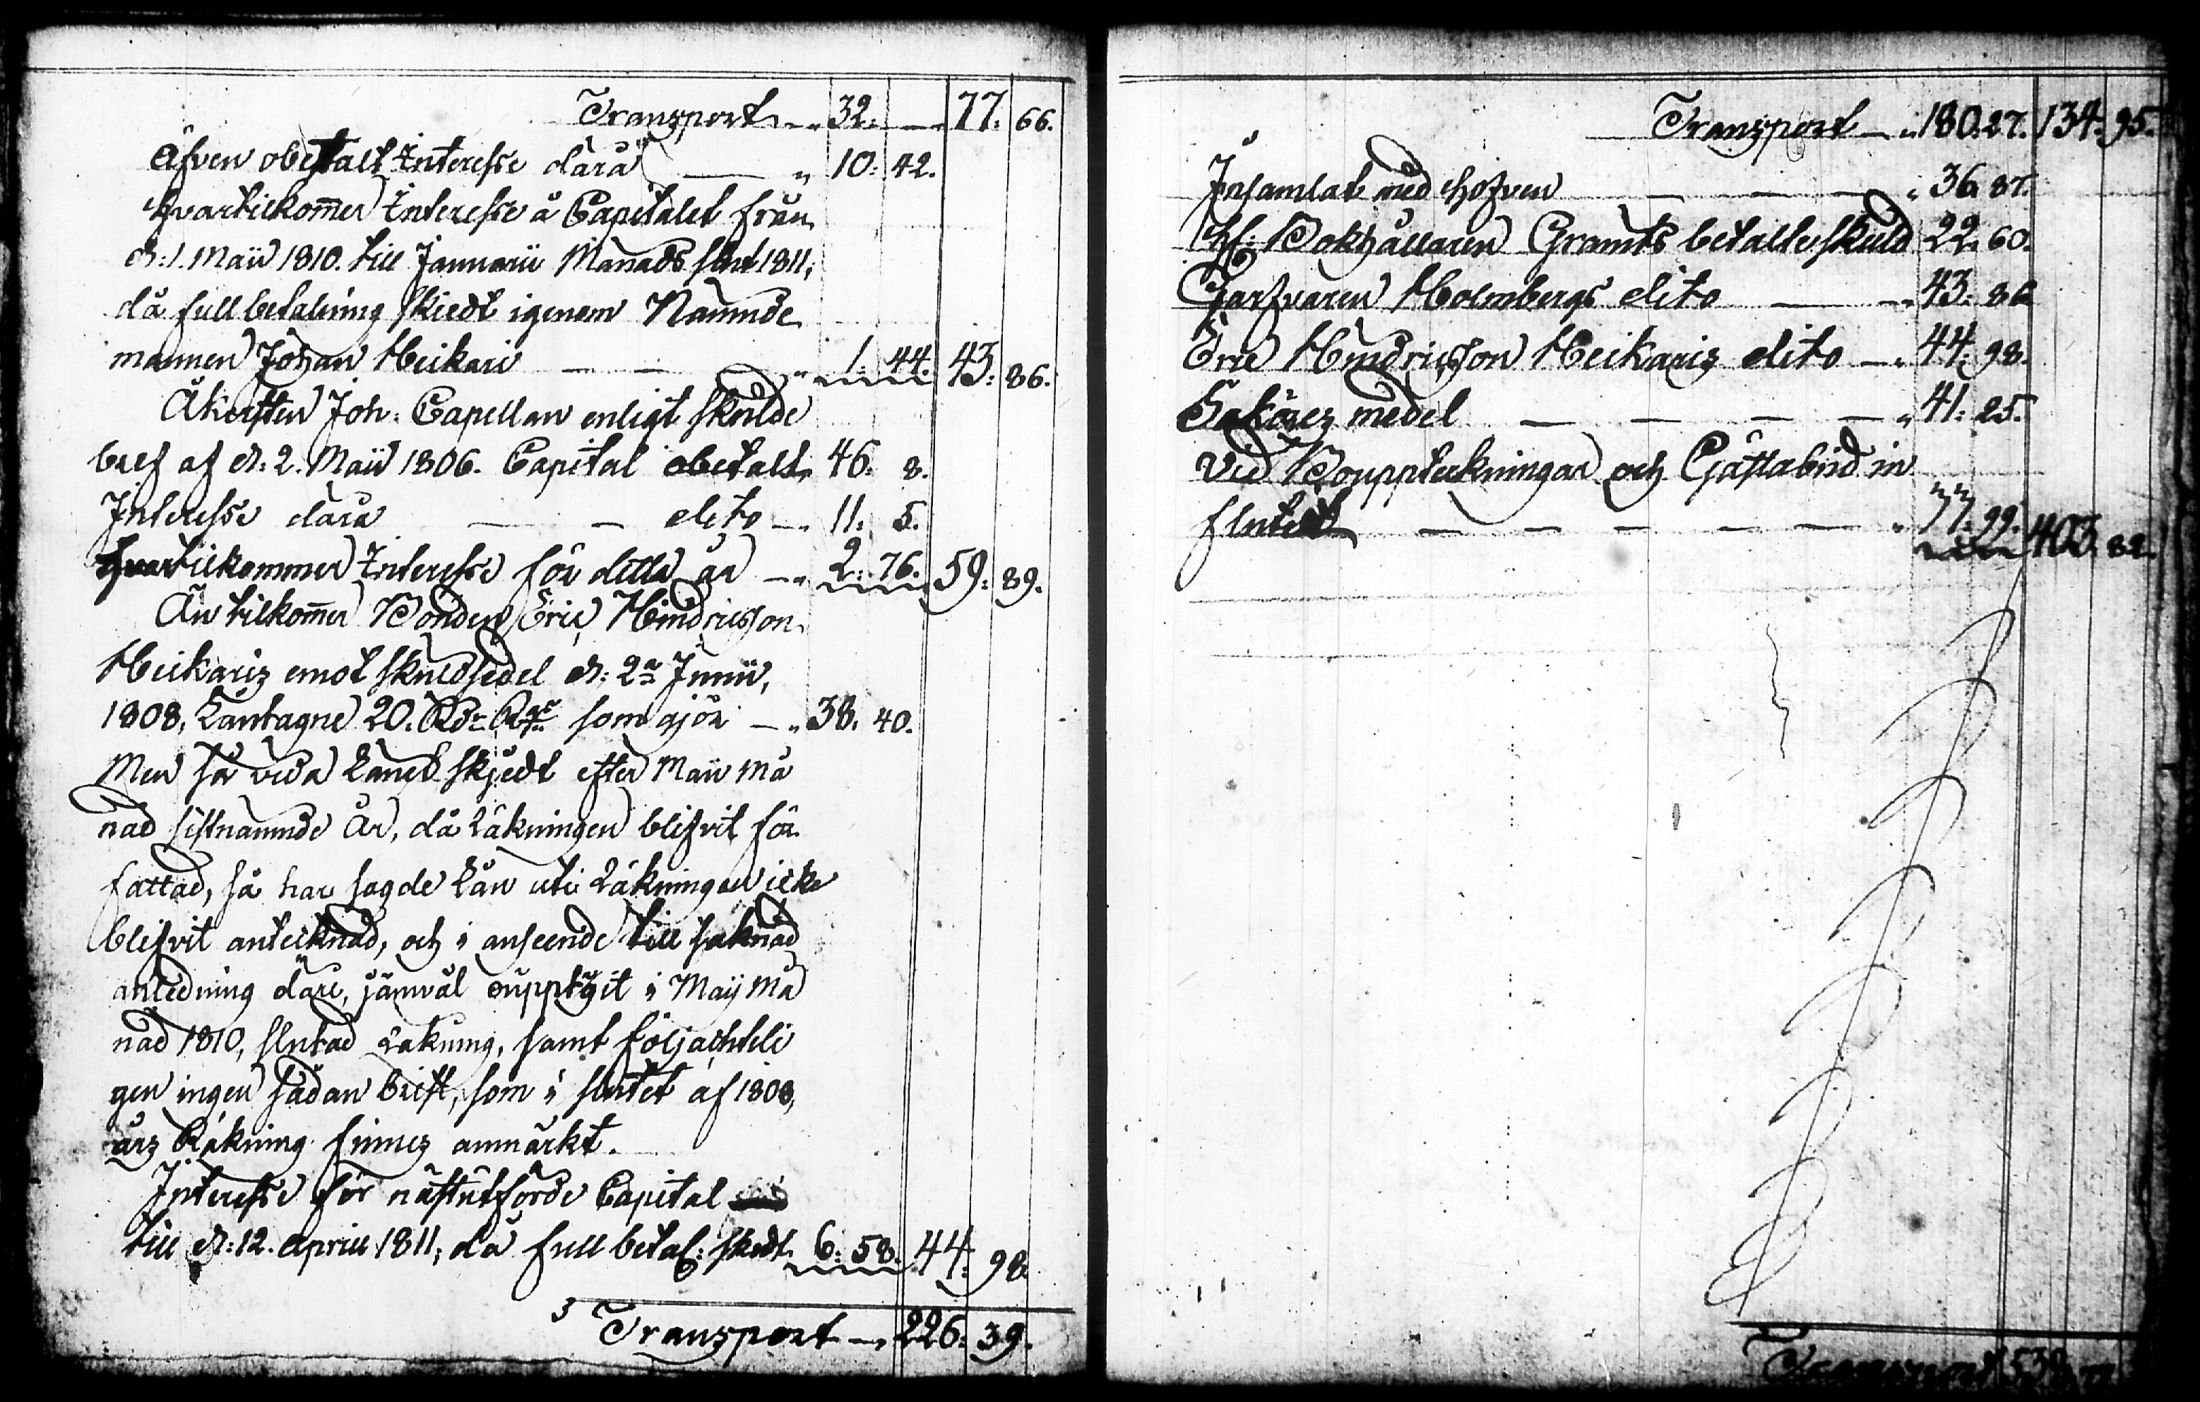 Transport — 32: — 77: 66.
Äfven obetalt Interesse därå — " 10: 42.
hvartilkom̅er Interesse å Capitalet från
d: 1. Maii 1810. till Januarii Månads slut 1811,
då full betalning skiedt igenom Nämnde
mannen Johan Heikari — — " 1: 44. 43: 86.
Åkerſten Joh: Capellan enligt skulde
bref af d: 2. Maii 1806. Capital obetalt 46: 8.
Interesse därå — — dito — 11: 5.
hvartilkommer Interesse för detta år — " 2: 76. 59: 89.
Än tilkom̅er Bonden Eric Hindricsson
Heikariz emot skuldsedel d: 2a Junii,
1808, Låntagne 20. Rdr Rgs som gjör — " 38. 40.
Men så vida Lånet skjedt efter Maii må
nad sistnämnde År, då Räkningen blifvit för
fattad, så har sagde Lån uti Räkningen icke
blifvit antecknad, och i anseende till saknad
anledning däri, jämväl oupptagit i Maij må
nad 1810, slutad Räkning, samt följachteli
gen ingen sådan brist, som i slutet af 1808,
års Räkning finnes anmärkt.
Interesse för nästutförde Capital
till d: 12. April 1811, då full betal: skedt 6: 58. 44: 98.
3 Transport — 226: 39.
Transport — " 180. 27. 134. 95.
Insamlat med Hofven — — — " 36. 87.
H: Bokhållaren Gramts betalte skuld 22. 60.
Garfvaren Holmbergs dito — — " 43: 86
Eric Hindricsson Heikariz dito — " 44: 98.
Saköres medel — — — — " 41: 25.
Vid Bouppteckningar och Gästabud in
flutit — — — — — " 77. 99. 403. 82.
Transport 538: 77